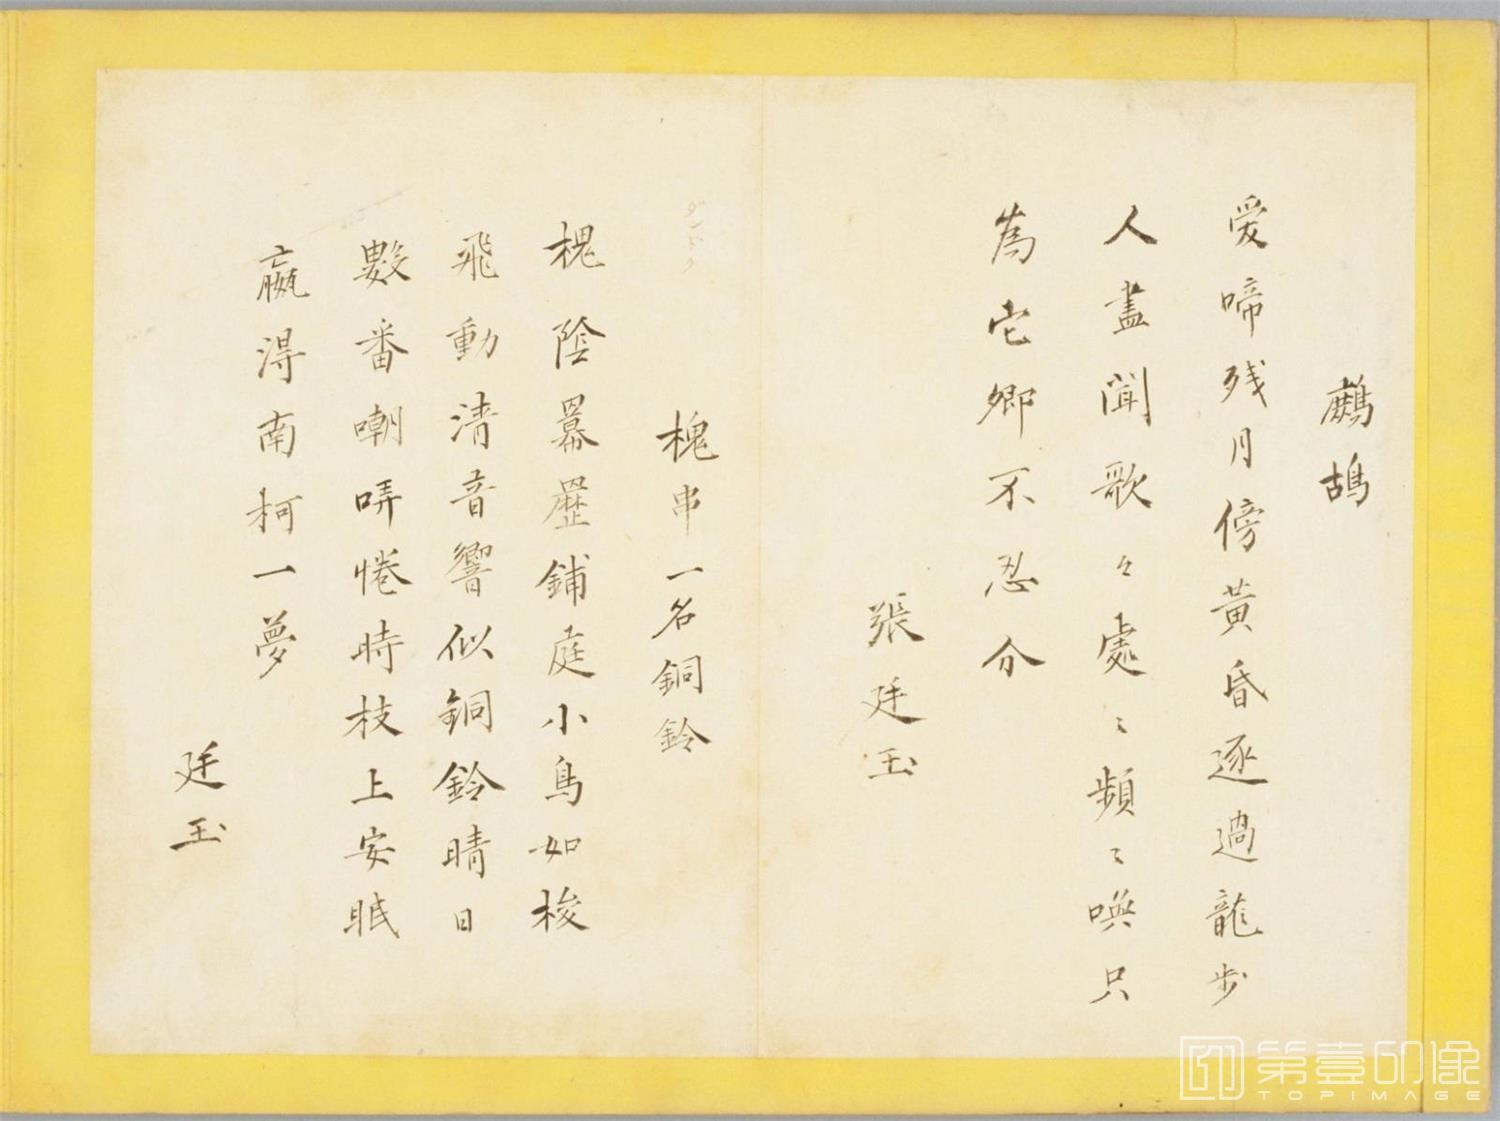 鷓鴣
愛啼残月傍黃昏逐過龍步
人盡聞歌々處〻頻〻喚只
為它鄉不忍分
張廷玉
槐串一名銅鈴
槐陰羃䍥鋪庭小鳥如梭
飛動清音響似銅鈴晴日
數番嘲哢惓時枝上安眠
嬴淂南柯一夢
廷玉
第壹印像
TOPIMAGE